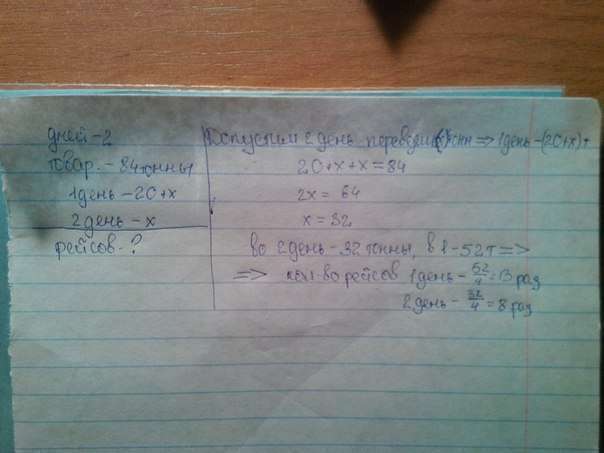 дней-2
товар.-84тонны
1день-20+x
2день-x
рейсов-?
Допустим 2 день перевезли (x)тонн => 1день-(20+x)т
20+x+x=84
2x = 64
x = 32
во 2 день-32 тонны, в 1-52т =>
=> кол-во рейсов 1 день - 52/4 = 13 раз
2 день - 32/4 = 8 раз